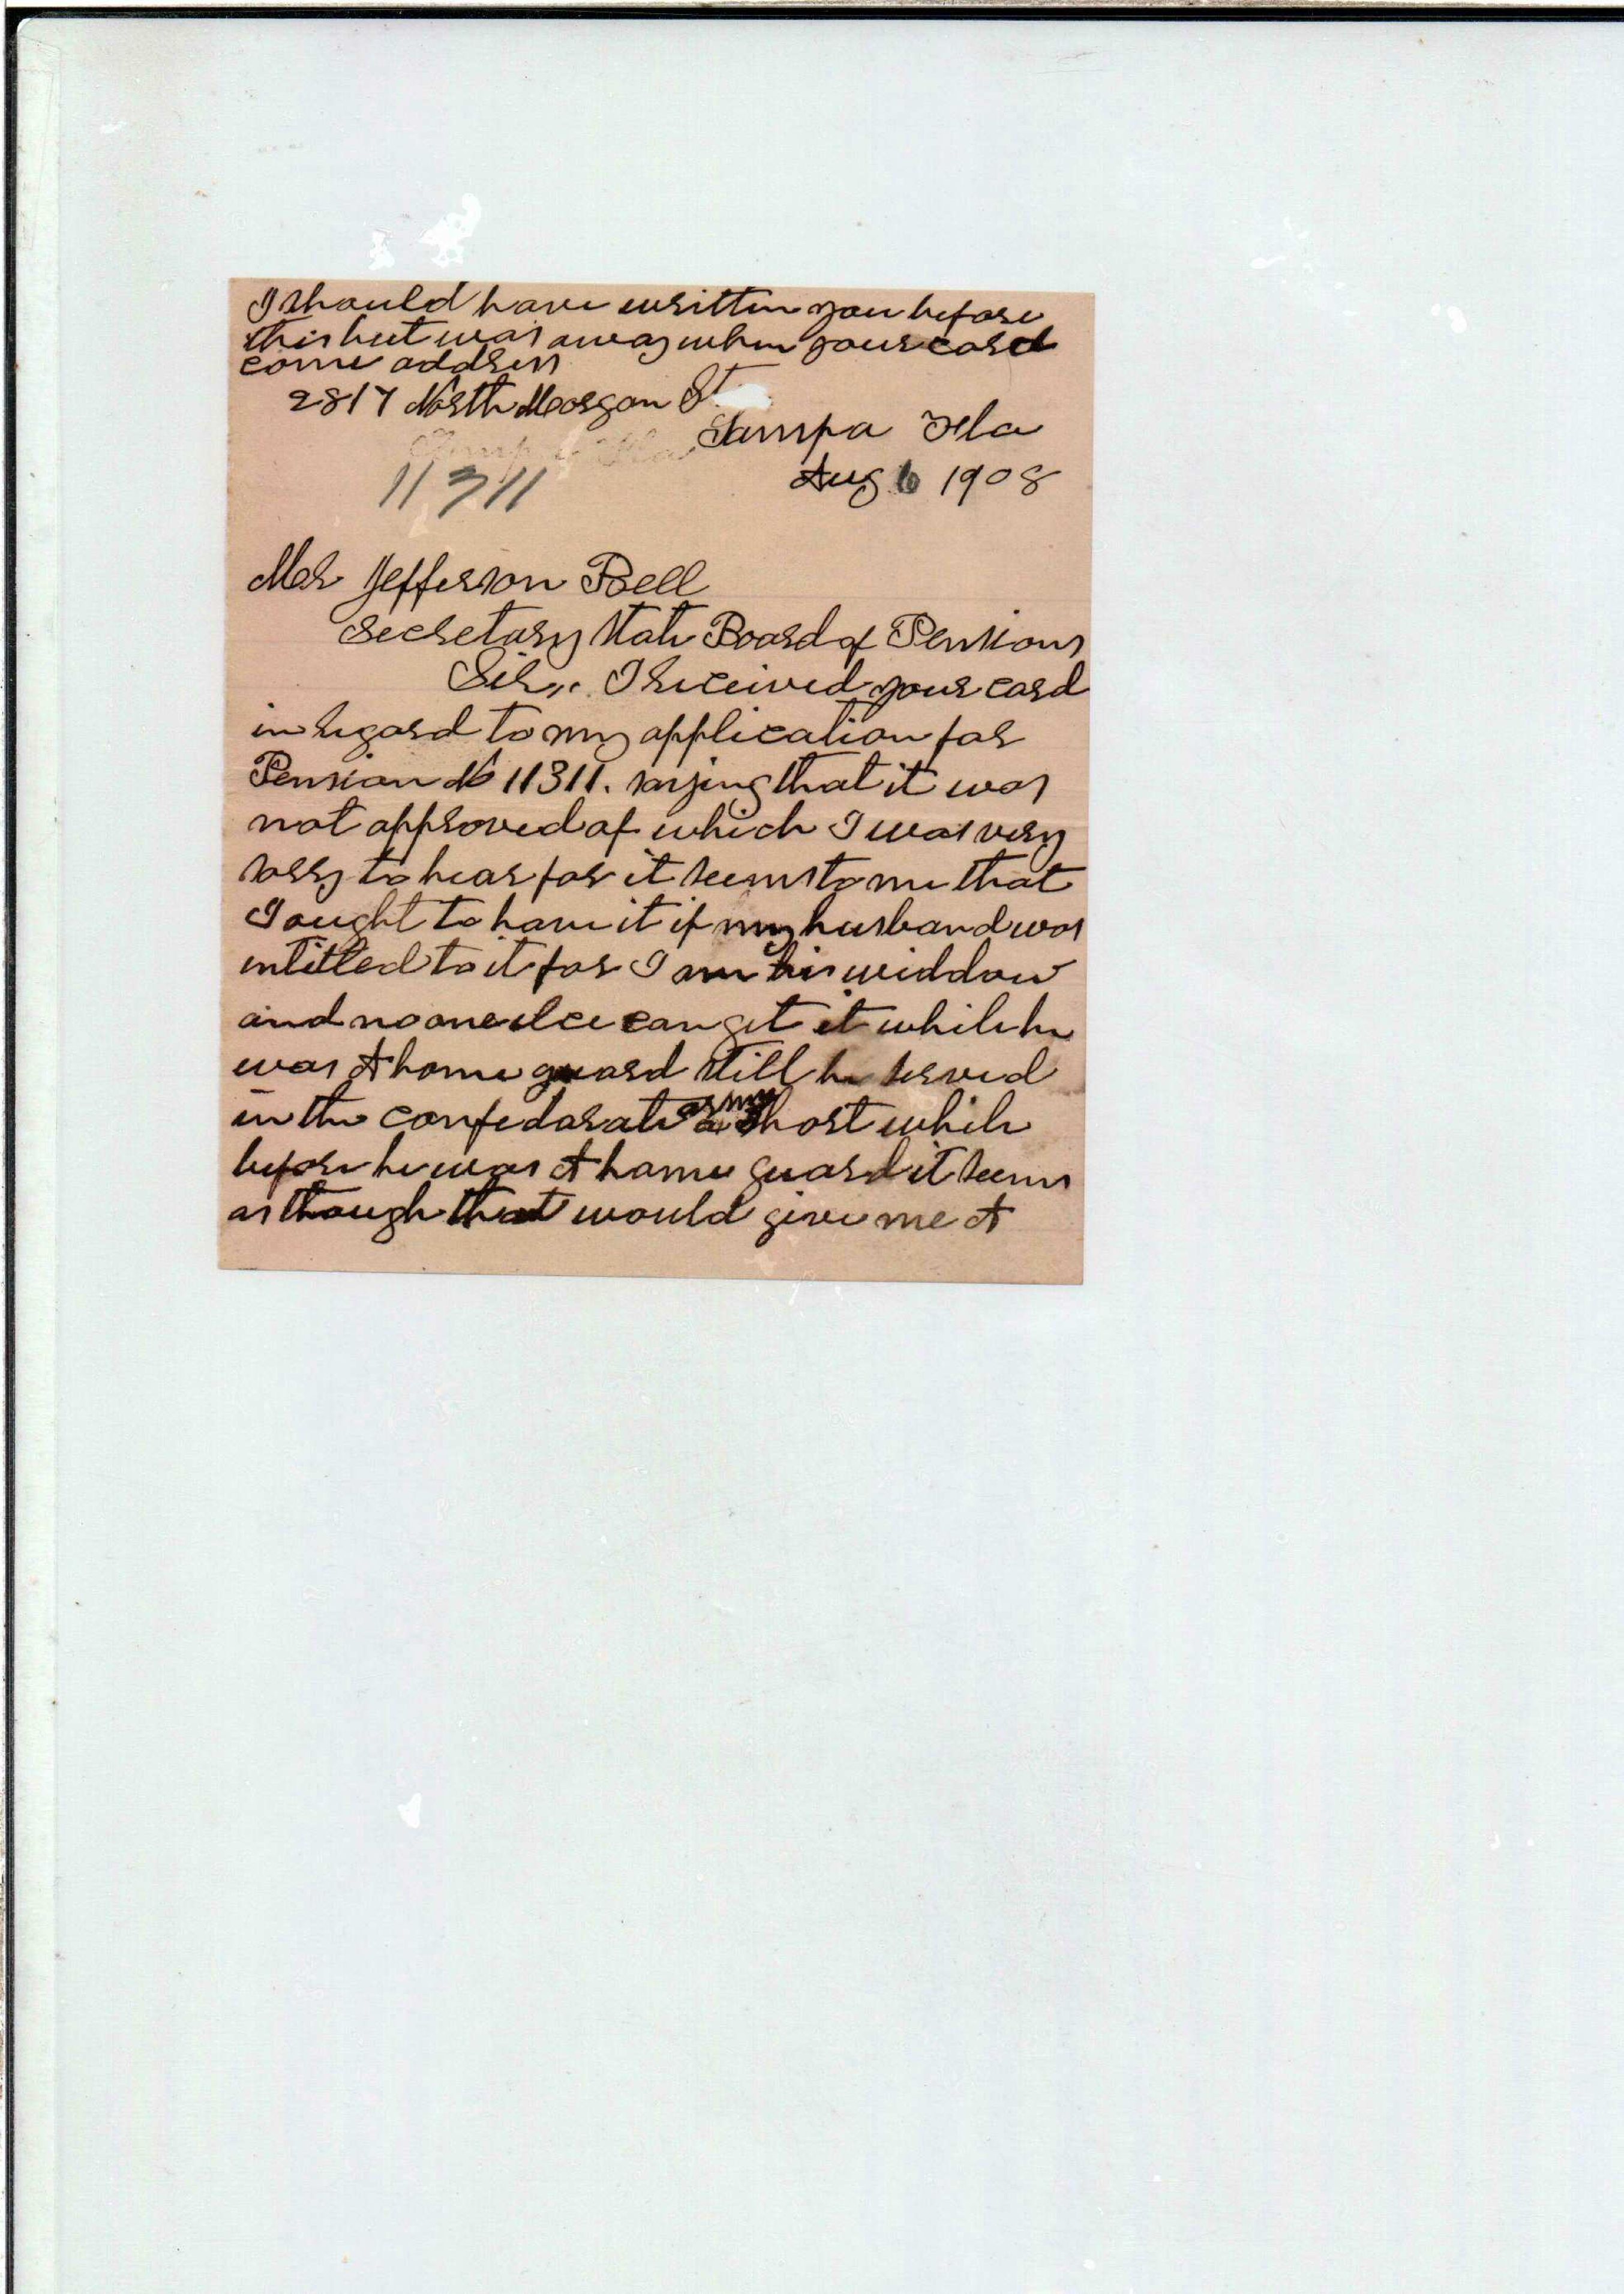 I should have written you before
this but was away when your card
come address
2817 North Morgan St
Tampa Fla
Aug 6 1908
11311
Mr Jefferson Bell
Secretary State Board of Pensions
Sir,,. I received your card
in regard to my application for
Pension No 11311. saying that it was
not approved of which I was very
sorry to hear for it seems to me that
I ought to have it if my husband was
intitled to it for I am his widdow
and no one elce can get it while he
was A home guard still he served
in the confedarate army a short while
before he was A home guard it seems
as though that would give me A